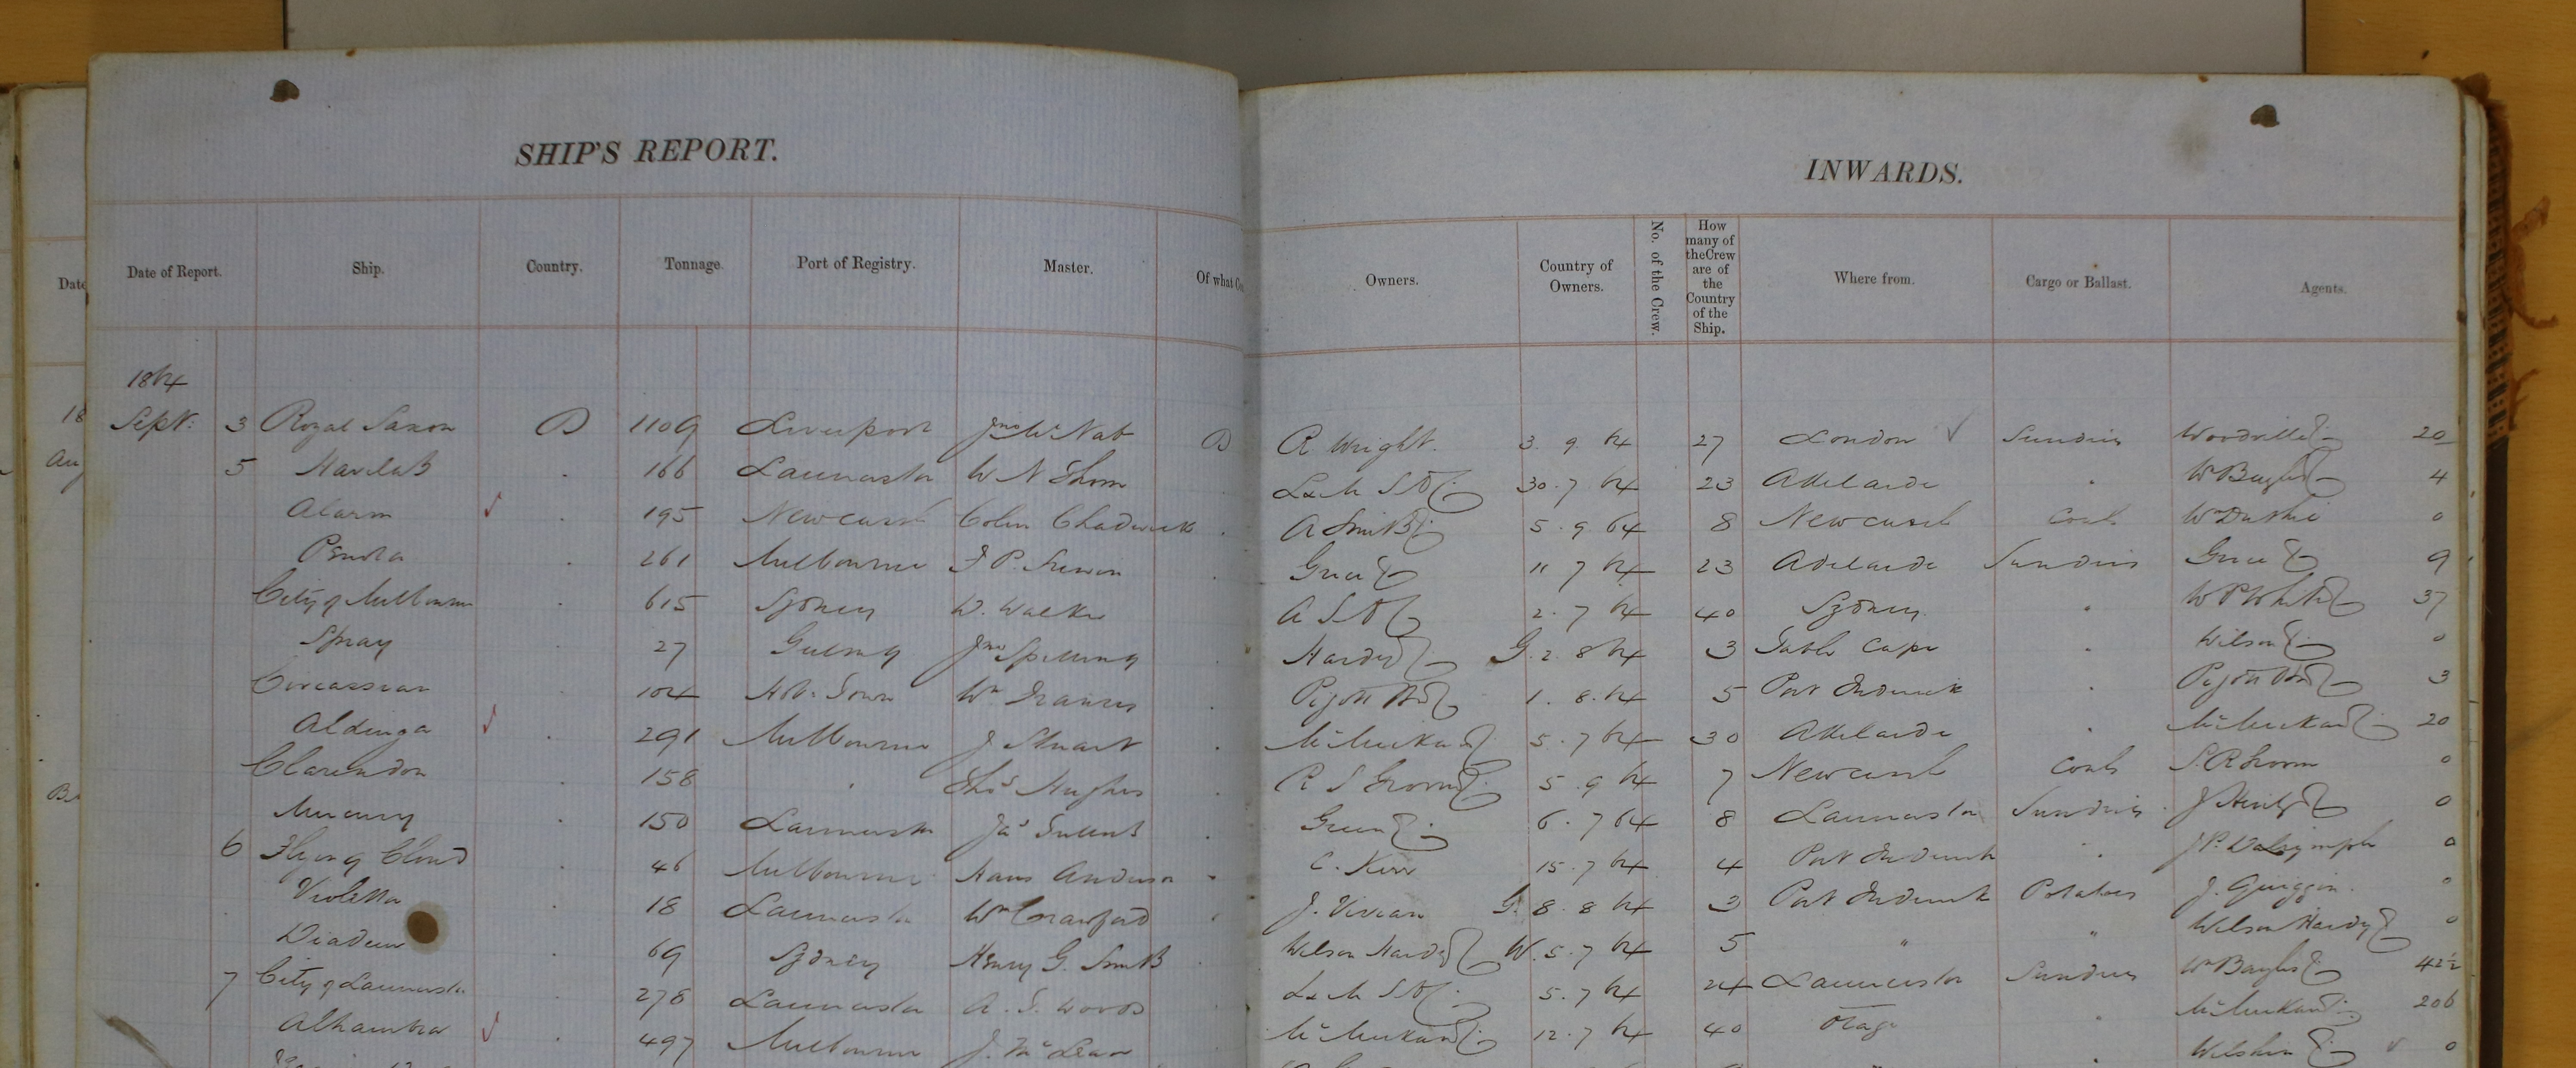 SHIP'S REPORT.
INWARDS.
Date
Date of Report. Ship. Country. Tonnage. Port of Registry. Master. Of what Co
Owners. Country of Owners. No. of the Crew. How many of the Crew are of the Country of the Ship. Where from. Cargo or Ballast. Agents.
1864
18
Sept: 3 Royal Saxon B 1109 Liverpool Jno McNab B R Wright. 3 9 64 27 London Sundries Woodville 20
5 Havilah 166 Launceston W N Thom L & M S N 30. 7 64 23 Adelaide W Bayles 4
Alarm 195 Newcastle Colin Chadwick A Smith 5. 9 64 8 Newcastle Coals W Duthie 0
Penola 261 Melbourne F P. Snewin Grice 11 7 64 23 Adelaide Sundries Grice 9
City of Melbourne 615 Sydney W. Walker A S N 2. 7 64 40 Sydney W P White 37
Spray 27 Geelong Jno Spilling Hardy G. 2 8 64 3 Table Cape Wilson 0
Circassian 104 Hob: Town Wm Francis 1. 8. 64 5 Port Frederick 3
Aldinga 291 Melbourne J Stuart McMeckan 5. 7 64 30 Adelaide McMeckan 20
Clarendon 158 Thos Hughes R S Groom 5. 9 64 7 Newcastle Coals S R Groom 0
Mercury 150 Launceston Jas Green 6. 7 64 8 Launceston Sundries J Henty 0
6 Flying Cloud 46 Melbourne Hans Anderson C. Kerr 15. 7 64 4 Port Frederick J P. Dalrymple 0
Violetta 18 Launceston Wm Crawford J. Vivian G. 8. 8 64 3 Port Frederick Potatoes J. Quiggin. 0
Diadem 69 Sydney Henry G. Smith Wilson Hardy W. 5. 7 64 5 " " Wilson Hardy 0
7 City of Launceston 278 Launceston A. T. Woods L & M S N 5. 7 64 24 Launceston Sundries W Bayles 42½
Alhambra 497 Melbourne J. McLean McMeckan 12. 7 64 40 Otago McMeckan 206
0